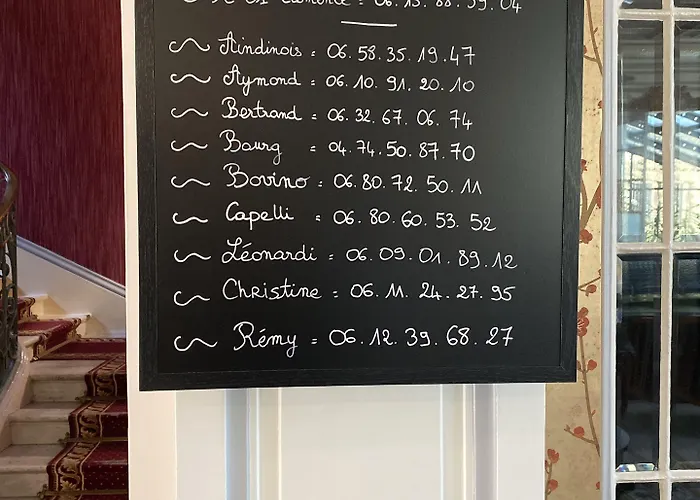 06.15.88.59.04
~ Aindinois = 06.58.35.19.47
~ Aymond = 06.10.91.20.10
~ Bertrand = 06.32.67.06.74
~ Bourg = 04.74.50.87.70
~ Bovino = 06.80.72.50.11
~ Capelli = 06.80.60.53.52
~ Léonardi = 06.09.01.89.12
~ Christine = 06.11.24.27.95
~ Rémy = 06.12.39.68.27